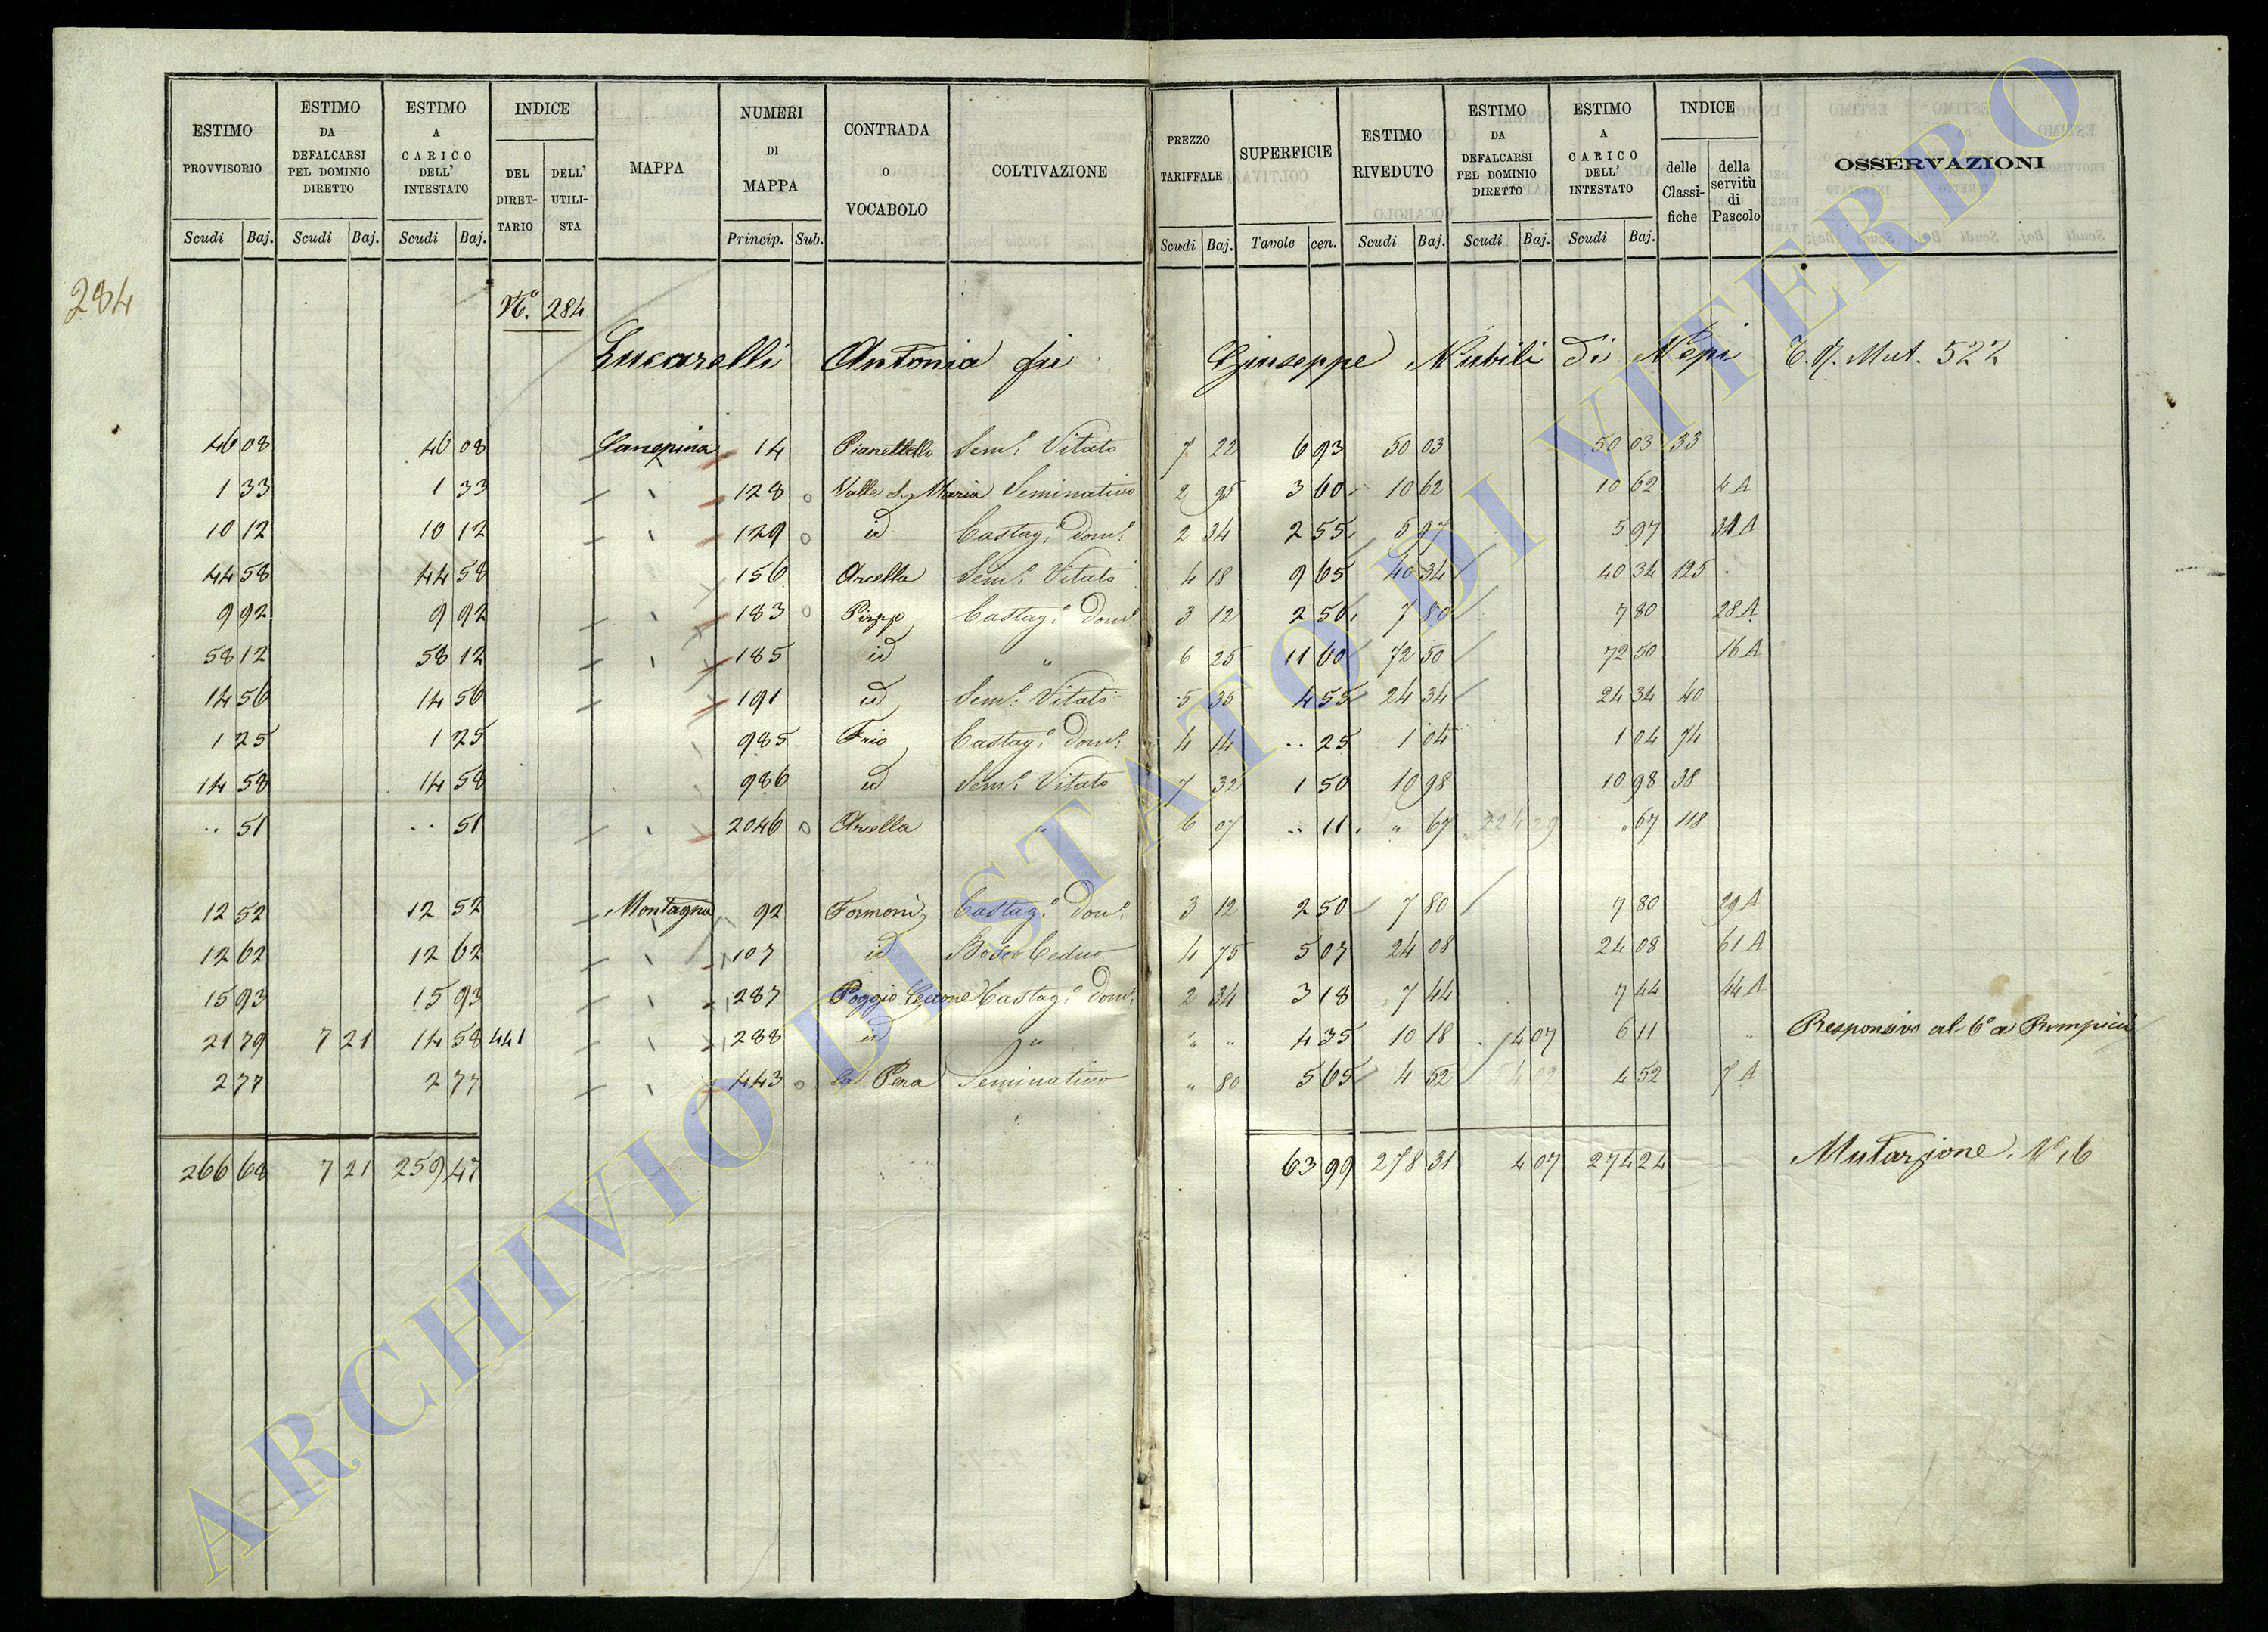 ESTIMO PROVVISORIO Scudi Baj.
ESTIMO DA DEFALCARSI PEL DOMINIO DIRETTO Scudi Baj.
ESTIMO A CARICO DELL' INTESTATO Scudi Baj.
INDICE DEL DIRET-TARIO DELL' UTILI-STA
MAPPA
NUMERI DI MAPPA Princip. Sub.
CONTRADA O VOCABOLO
COLTIVAZIONE
PREZZO TARIFFALE Scudi Baj.
SUPERFICIE Tavole cen.
ESTIMO RIVEDUTO Scudi Baj.
ESTIMO DA DEFALCARSI PEL DOMINIO DIRETTO Scudi Baj.
ESTIMO A CARICO DELL' INTESTATO Scudi Baj.
INDICE delle Classi-fiche della servitù di Pascolo
OSSERVAZIONI
284
N.º 284
Lucarelli Antonia fu Giuseppe Nubili di Nepi Mut. 522
46 08 46 08 Canepina 14 Pianettello Sem.º Vitato 7 22 6 93 50 03 50 03 33
1 33 1 33 " 128 Valle S. Maria Seminativo 2 95 3 60 10 62 10 62 4 A
10 12 10 12 " 129 id Castag.º dom.º 2 34 2 55 5 97 5 97 31 A
44 58 44 58 156 Arcella Sem.º Vitato 4 18 9 65 40 34 40 34 125
9 92 9 92 " 183 Pizzo Castag.º dom.º 3 12 2 50 7 80 7 80 28 A
58 12 58 12 " 185 id " 6 25 11 60 72 50 72 50 16 A
14 56 14 56 " 191 id Sem.º Vitato 5 35 4 55 24 34 24 34 40
1 25 1 25 985 Frio Castag.º dom.º 4 14 .. 25 1 04 1 04 74
14 58 14 58 986 id Sem.º Vitato 7 32 1 50 10 98 10 98 38
.. 51 .. 51 " 2046 Arcella " 6 07 .. 11 " 67 " 67 118
12 52 12 52 Montagna 92 Formoni Castag.º dom.º 3 12 2 50 7 80 7 80 29 A
12 62 12 62 " 107 id Bosco Ceduo 4 75 5 07 24 08 24 08 61 A
15 93 15 93 " 287 Poggio Cecione Castag.º dom.º 2 34 3 18 7 44 7 44 44 A
21 79 7 21 14 58 441 " 288 id " " " 4 35 10 18 4 07 6 11 " Responsivo al 6º a
2 77 2 77 " 443 la Pera Seminativo " 80 5 65 4 52 4 52 7 A
266 68 7 21 259 47 63 99 278 31 4 07 274 24 Mutazione N.º 16
ARCHIVIO DI STATO DI VITERBO